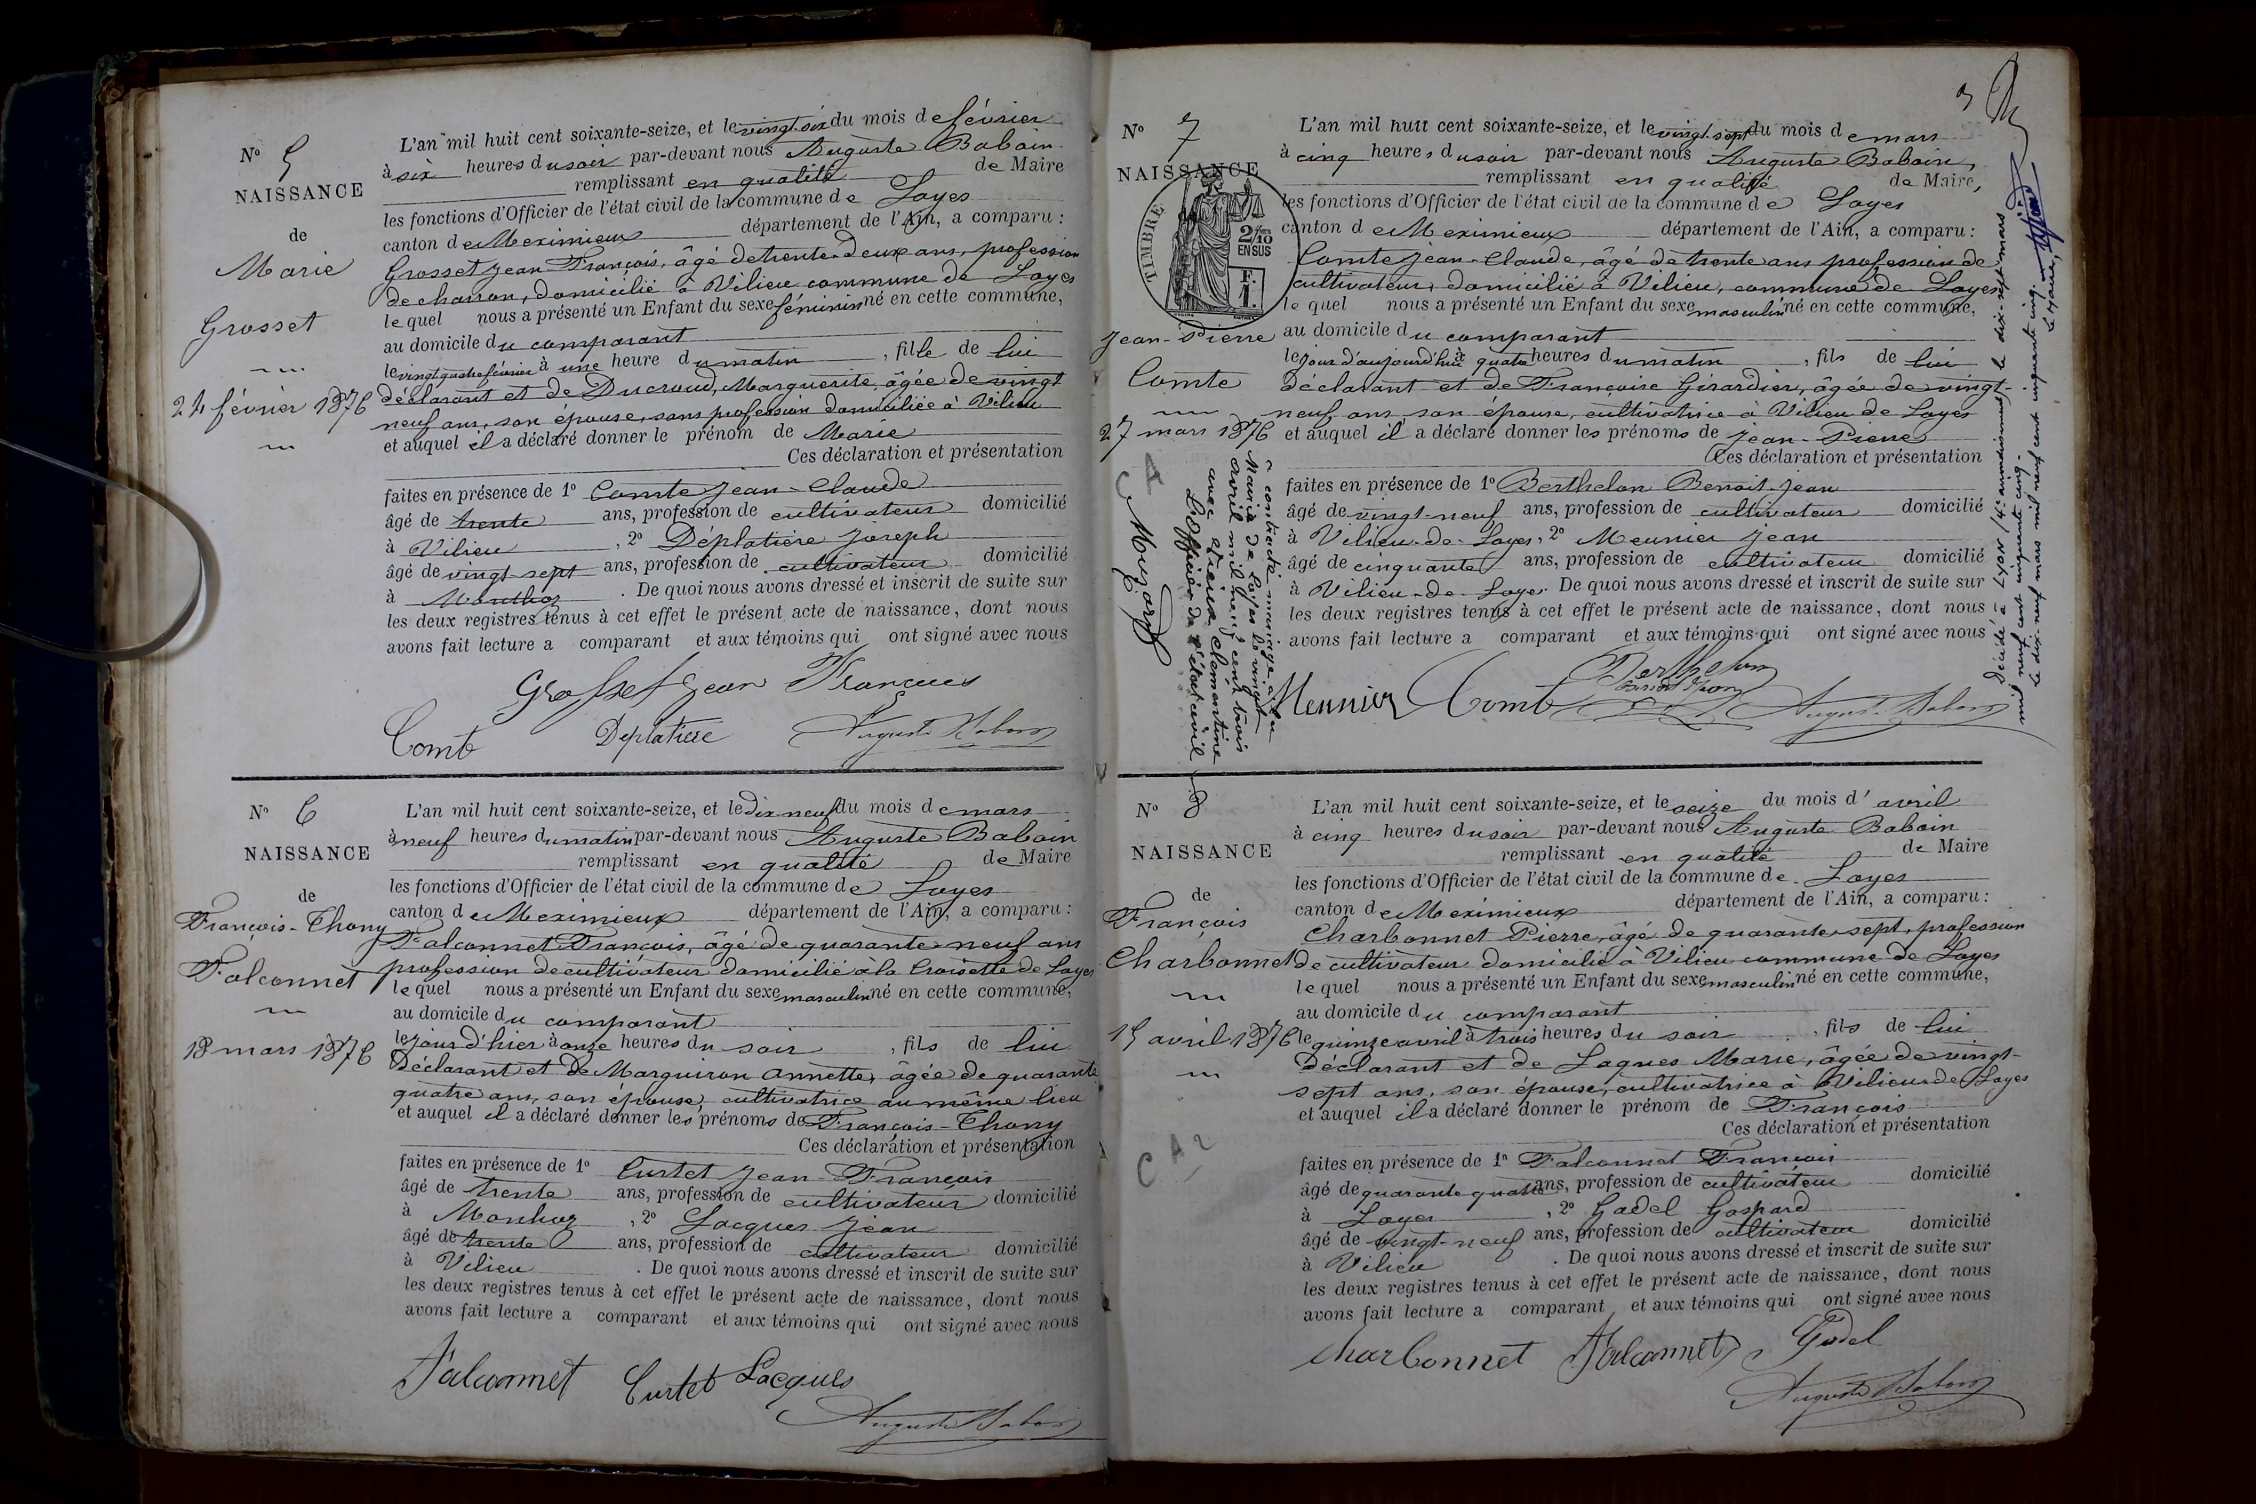 N° 5
NAISSANCE
de
Marie
Grosset
24 février 1876
L'an mil huit cent soixante-seize, et le vingt-six du mois de février
à six heures du soir par-devant nous Auguste Baboin
remplissant en qualité de Maire
les fonctions d'Officier de l'état civil de la commune de Loyes
canton de Meximieux département de l'Ain, a comparu :
Grosset Jean-François, âgé de trente-deux ans, profession
de charron, domicilié à Vilieu commune de Loyes
lequel nous a présenté un Enfant du sexe féminin né en cette commune,
au domicile du comparant
le vingt quatre février à une heure du matin, fille de lui
déclarant et de Ducroud, Marguerite, âgée de vingt
neuf ans, son épouse, sans profession domiciliée à Vilieu
et auquel il a déclaré donner le prénom de Marie
Ces déclaration et présentation
faites en présence de 1° Comte Jean-Claude
âgé de trente ans, profession de cultivateur domicilié
à Vilieu, 2° Déplatière Joseph
âgé de vingt-sept ans, profession de cultivateur domicilié
à Monthoz. De quoi nous avons dressé et inscrit de suite sur
les deux registres tenus à cet effet le présent acte de naissance, dont nous
avons fait lecture a comparant et aux témoins qui ont signé avec nous
Grosset Jean François
Comte Deplatiere Auguste Baboin
N° 6
NAISSANCE
de
François-Thony
Falconnet
18 mars 1876
L'an mil huit cent soixante-seize, et le dix neuf du mois de mars
à neuf heures du matin par-devant nous Auguste Baboin
remplissant en qualité de Maire
les fonctions d'Officier de l'état civil de la commune de Loyes
canton de Meximieux département de l'Ain, a comparu :
Falconnet François, âgé de quarante neuf ans
profession de cultivateur domicilié à la Croisette de Loyes
lequel nous a présenté un Enfant du sexe masculin né en cette commune,
au domicile du comparant
le jour d'hier à onze heures du soir, fils de lui
Déclarant et de Marguiron Annette, âgée de quarante
quatre ans, son épouse, cultivatrice au même lieu
et auquel il a déclaré donner les prénoms de François-Thony
Ces déclaration et présentation
faites en présence de 1° Curtet Jean-François
âgé de trente ans, profession de cultivateur domicilié
à Monthoz, 2° Jacques Jean
âgé de trente ans, profession de cultivateur domicilié
à Vilieu. De quoi nous avons dressé et inscrit de suite sur
les deux registres tenus à cet effet le présent acte de naissance, dont nous
avons fait lecture a comparant et aux témoins qui ont signé avec nous
Falconnet Curtet Jacques
Auguste Baboin
3
N° 7
NAISSANCE
TIMBRE
2/10
EN SUS
Jean-Pierre
Comte
27 mars 1876
L'an mil huit cent soixante-seize, et le vingt-sept du mois de mars
à cinq heures du soir par-devant nous Auguste Baboin,
remplissant en qualité de Maire,
les fonctions d'Officier de l'état civil de la commune de Loyes
canton de Meximieux département de l'Ain, a comparu :
Comte Jean-Claude, âgé de trente ans profession de
cultivateur, domicilié à Vilieu, commune de Loyes
lequel nous a présenté un Enfant du sexe masculin né en cette commune,
au domicile du comparant
le jour d'aujourd'hui à quatre heures du matin, fils de lui
déclarant et de Françoise Girardier, âgée de vingt-
neuf ans, son épouse, cultivatrice à Vilieu de Loyes
et auquel il a déclaré donner les prénoms de Jean-Pierre
Ces déclaration et présentation
faites en présence de 1° Berthelon Benoit-Jean
âgé de vingt-neuf ans, profession de cultivateur domicilié
à Vilieu-de-Loyes, 2° Meunier Jean
âgé de cinquante ans, profession de cultivateur domicilié
à Vilieu-de-Loyes. De quoi nous avons dressé et inscrit de suite sur
les deux registres tenus à cet effet le présent acte de naissance, dont nous
avons fait lecture a comparant et aux témoins qui ont signé avec nous
Meunier Comte Berthelon Auguste Baboin
a contracté mariage à la
Mairie de le vingt
avril mil neuf cent trois
avec Clémentine
L'Officier de l'état civil
Décédé à LYON (4e arrondissement) le dix-sept mars
mil neuf cent cinquante cinq.
Le dix-neuf mars mil neuf cent cinquante cinq.
Le Maire,
N° 8
NAISSANCE
de
François
Charbonnet
15 avril 1876
L'an mil huit cent soixante-seize, et le seize du mois d'avril
à cinq heures du soir par-devant nous Auguste Baboin
remplissant en qualité de Maire
les fonctions d'Officier de l'état civil de la commune de Loyes
canton de Meximieux département de l'Ain, a comparu :
Charbonnet Pierre, âgé de quarante-sept, profession
de cultivateur domicilié à Vilieu commune de Loyes
lequel nous a présenté un Enfant du sexe masculin né en cette commune,
au domicile du comparant
le quinze avril à trois heures du soir, fils de lui
Déclarant et de Jaques Marie, âgée de vingt-
sept ans, son épouse, cultivatrice à Vilieu de Loyes
et auquel il a déclaré donner le prénom de François
Ces déclaration et présentation
faites en présence de 1° Falconnet François
âgé de quarante quatre ans, profession de cultivateur domicilié
à Loyes, 2° Gadel Gaspard
âgé de vingt-neuf ans, profession de cultivateur domicilié
à Vilieu. De quoi nous avons dressé et inscrit de suite sur
les deux registres tenus à cet effet le présent acte de naissance, dont nous
avons fait lecture a comparant et aux témoins qui ont signé avec nous
Charbonnet Falconnet Gadel
Auguste Baboin